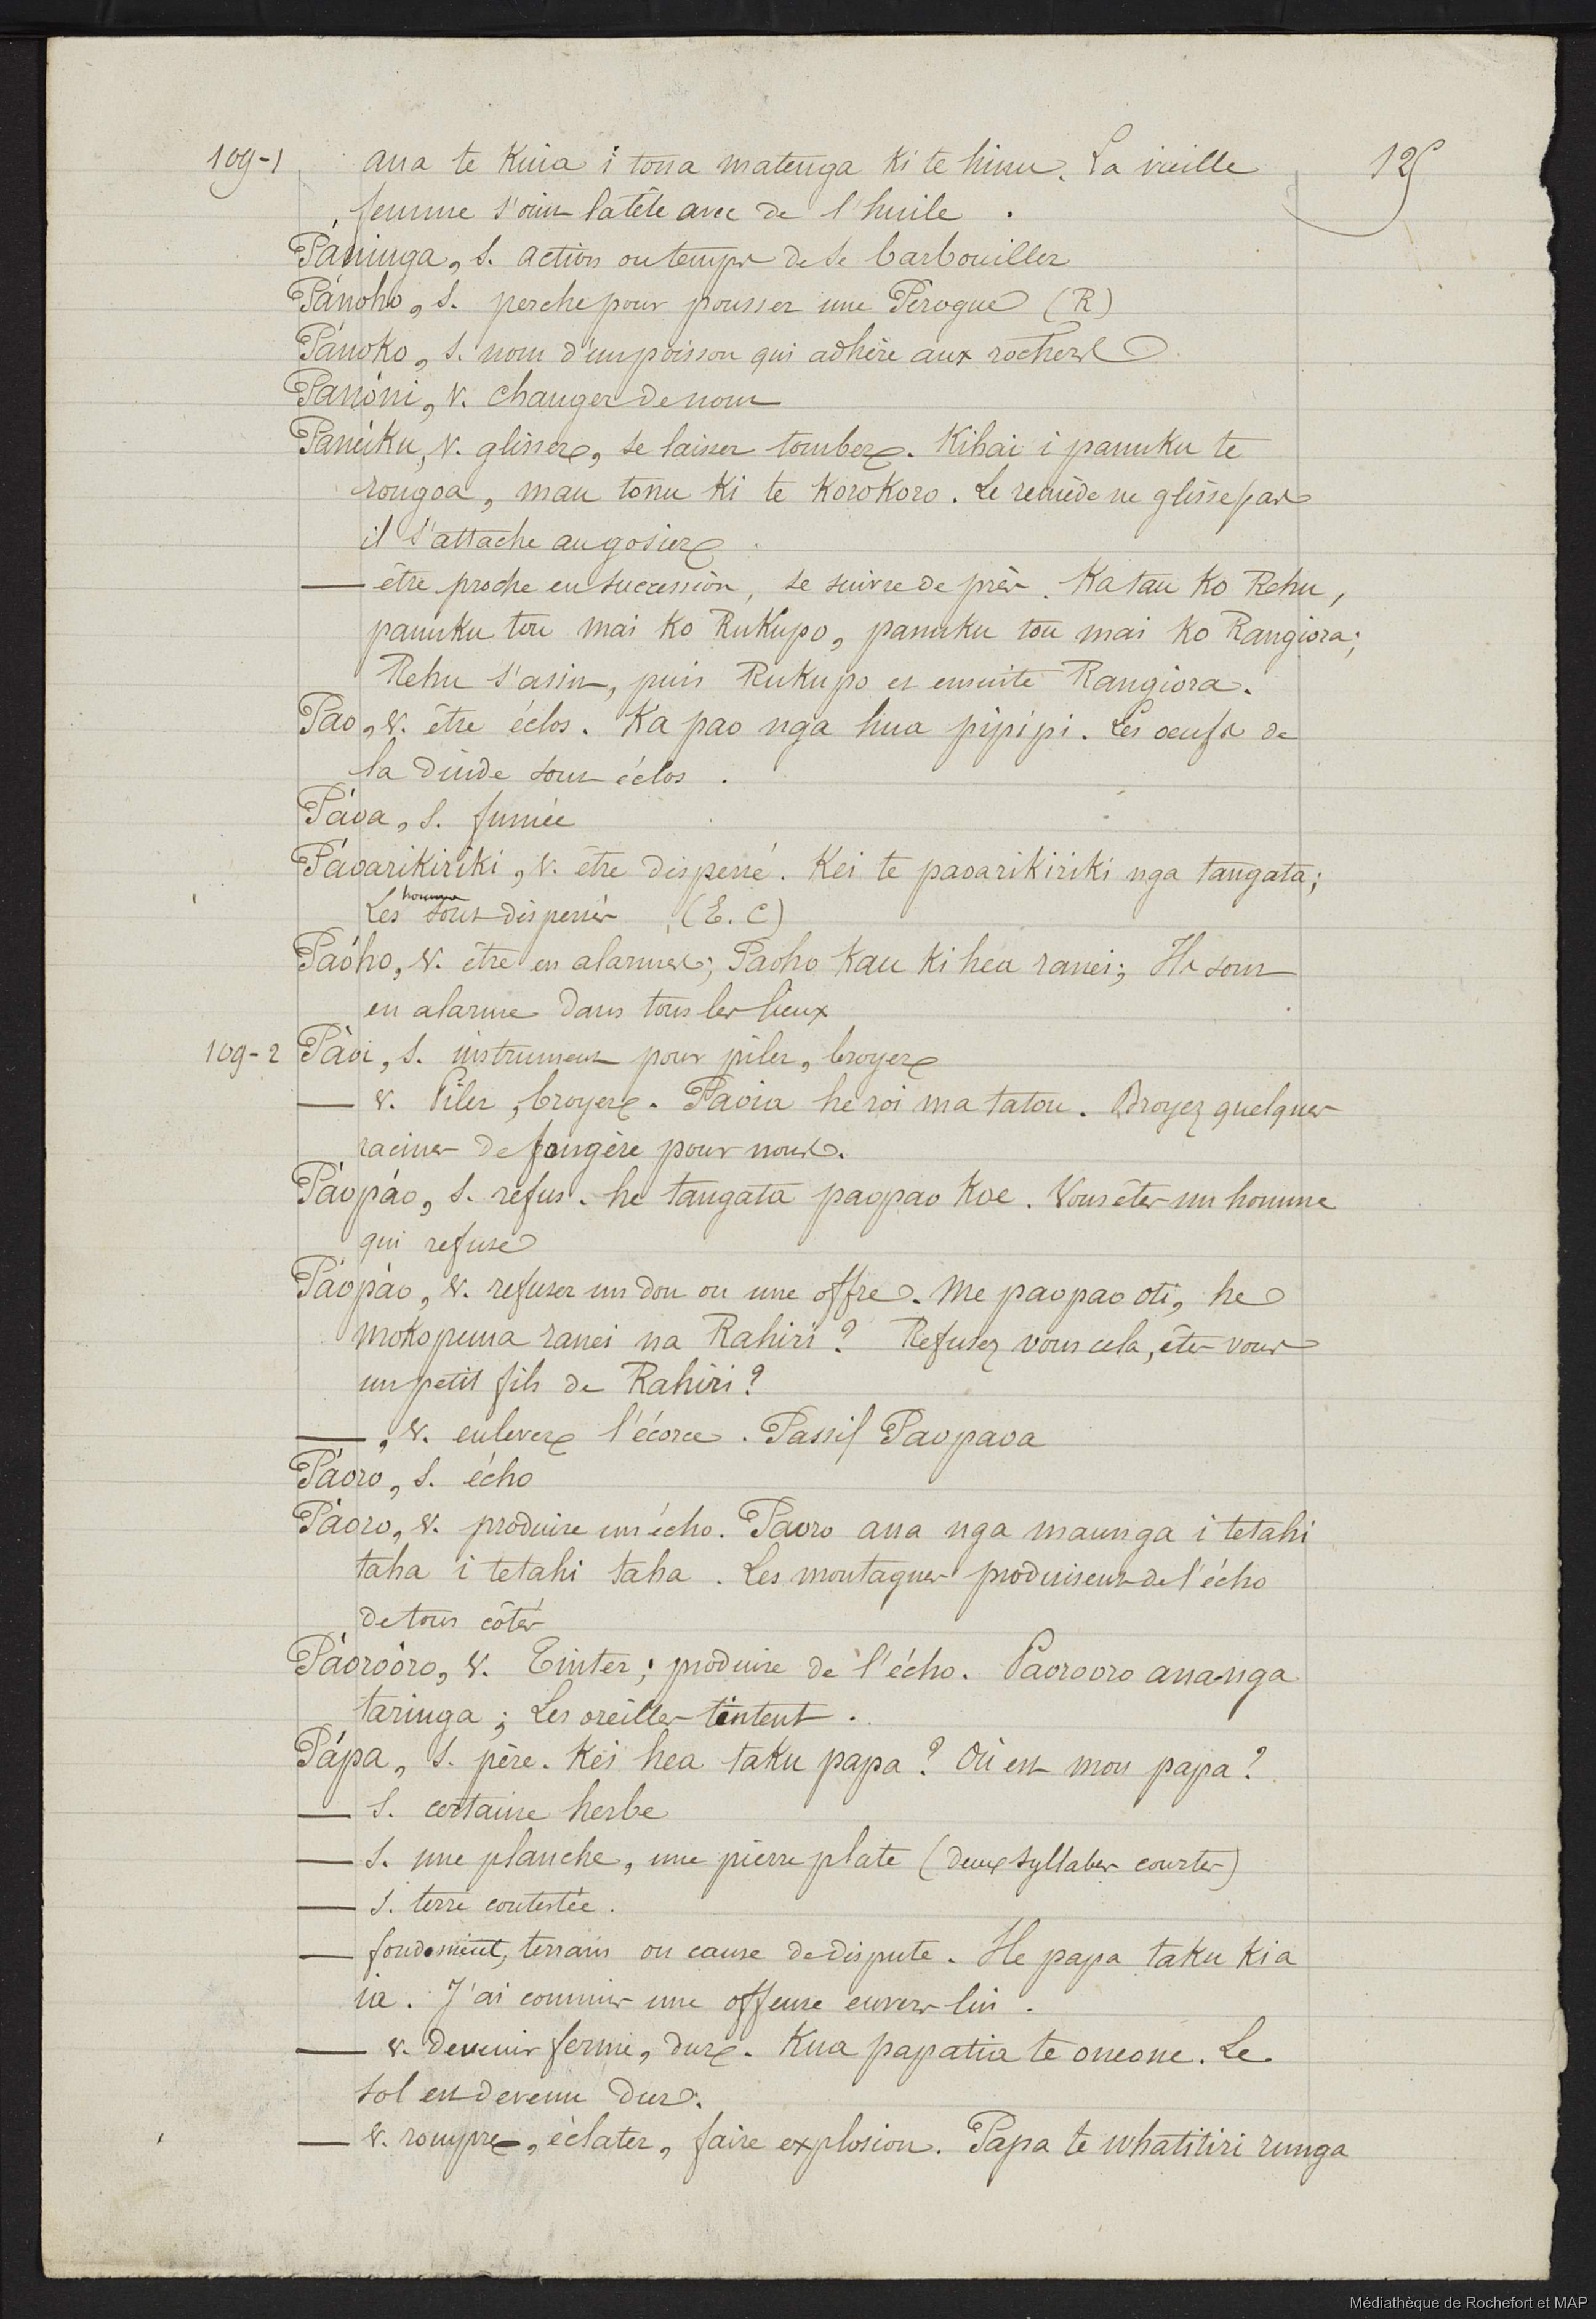 109-1 ana te Kuia i tona matenga ki te hinu. La vieille 125
femme s'oint la tête avec de l'huile.
Páninga, s. action ou temps de se barbouiller
Pánoho, s. perche pour pousser une Pirogue (R)
Pánoko, s. nom d'un poisson qui adhère aux rochers
Panóni, v. changer de nom
Panúku, v. glisser, se laisser tomber. Kihai i panuku te
rongoa, mau tonu ki te korokoro. Le remède ne glisse pas
il s'attache au gosier.
— être proche en succession, se suivre de près. Ka tau ko Rehu,
panuku tou mai ko Rukupo, panuku tou mai ko Rangiora;
Rehu s'assit, puis Rukupo et ensuite Rangiora.
Páo, v. être éclos. Ka pao nga hua pipipi. Les oeufs de
la dinde sont éclos.
Páoa, s. fumée
Páoarikiriki, v. être dispersé. Kei te paoarikiriki nga tangata;
Les hommes sont dispersés (E. C)
Paóho, v. être en alarmes; Paoho kau ki hea ranei; Ils sont
en alarme dans tous les lieux
109-2 Pàoi, s. instrument pour piler, broyer
— v. Piler, broyer. Paoia he roi ma tatou. Broyez quelques
racines de fougère pour nous.
Páopáo, s. refus. he tangata paopao koe. Vous êtes un homme
qui refuse
Páopào, v. refuser un don ou une offre. Me paopao oti, he
mokopuna ranei na Rahiri? Refusez vous cela, êtes vous
un petit fils de Rahiri?
—, v. enlever l'écorce. Passif Paopaoa
Páoro, s. écho
Pàoro, v. produire un écho. Paoro ana nga maunga i tetahi
taha i tetahi taha. Les montagnes produisent de l'écho
de tous côtés
Pàoroóro, v. Tinter; produire de l'écho. Paorooro ana nga
taringa; Les oreilles tintent.
Pápa, s. père. Kei hea taku papa? Où est mon papa?
— s. certaine herbe
— s. une planche, une pierre plate (deux syllabes courtes)
— s. terre contestée.
— fondement, terrain ou cause de dispute. He papa taku ki a
ia. J'ai commis une offense envers lui.
— v. devenir ferme, dur. Kua papatia te oneone. Le
sol est devenu dur.
— v. rompre, éclater, faire explosion. Papa te whatitiri runga
Médiathèque de Rochefort et MAP